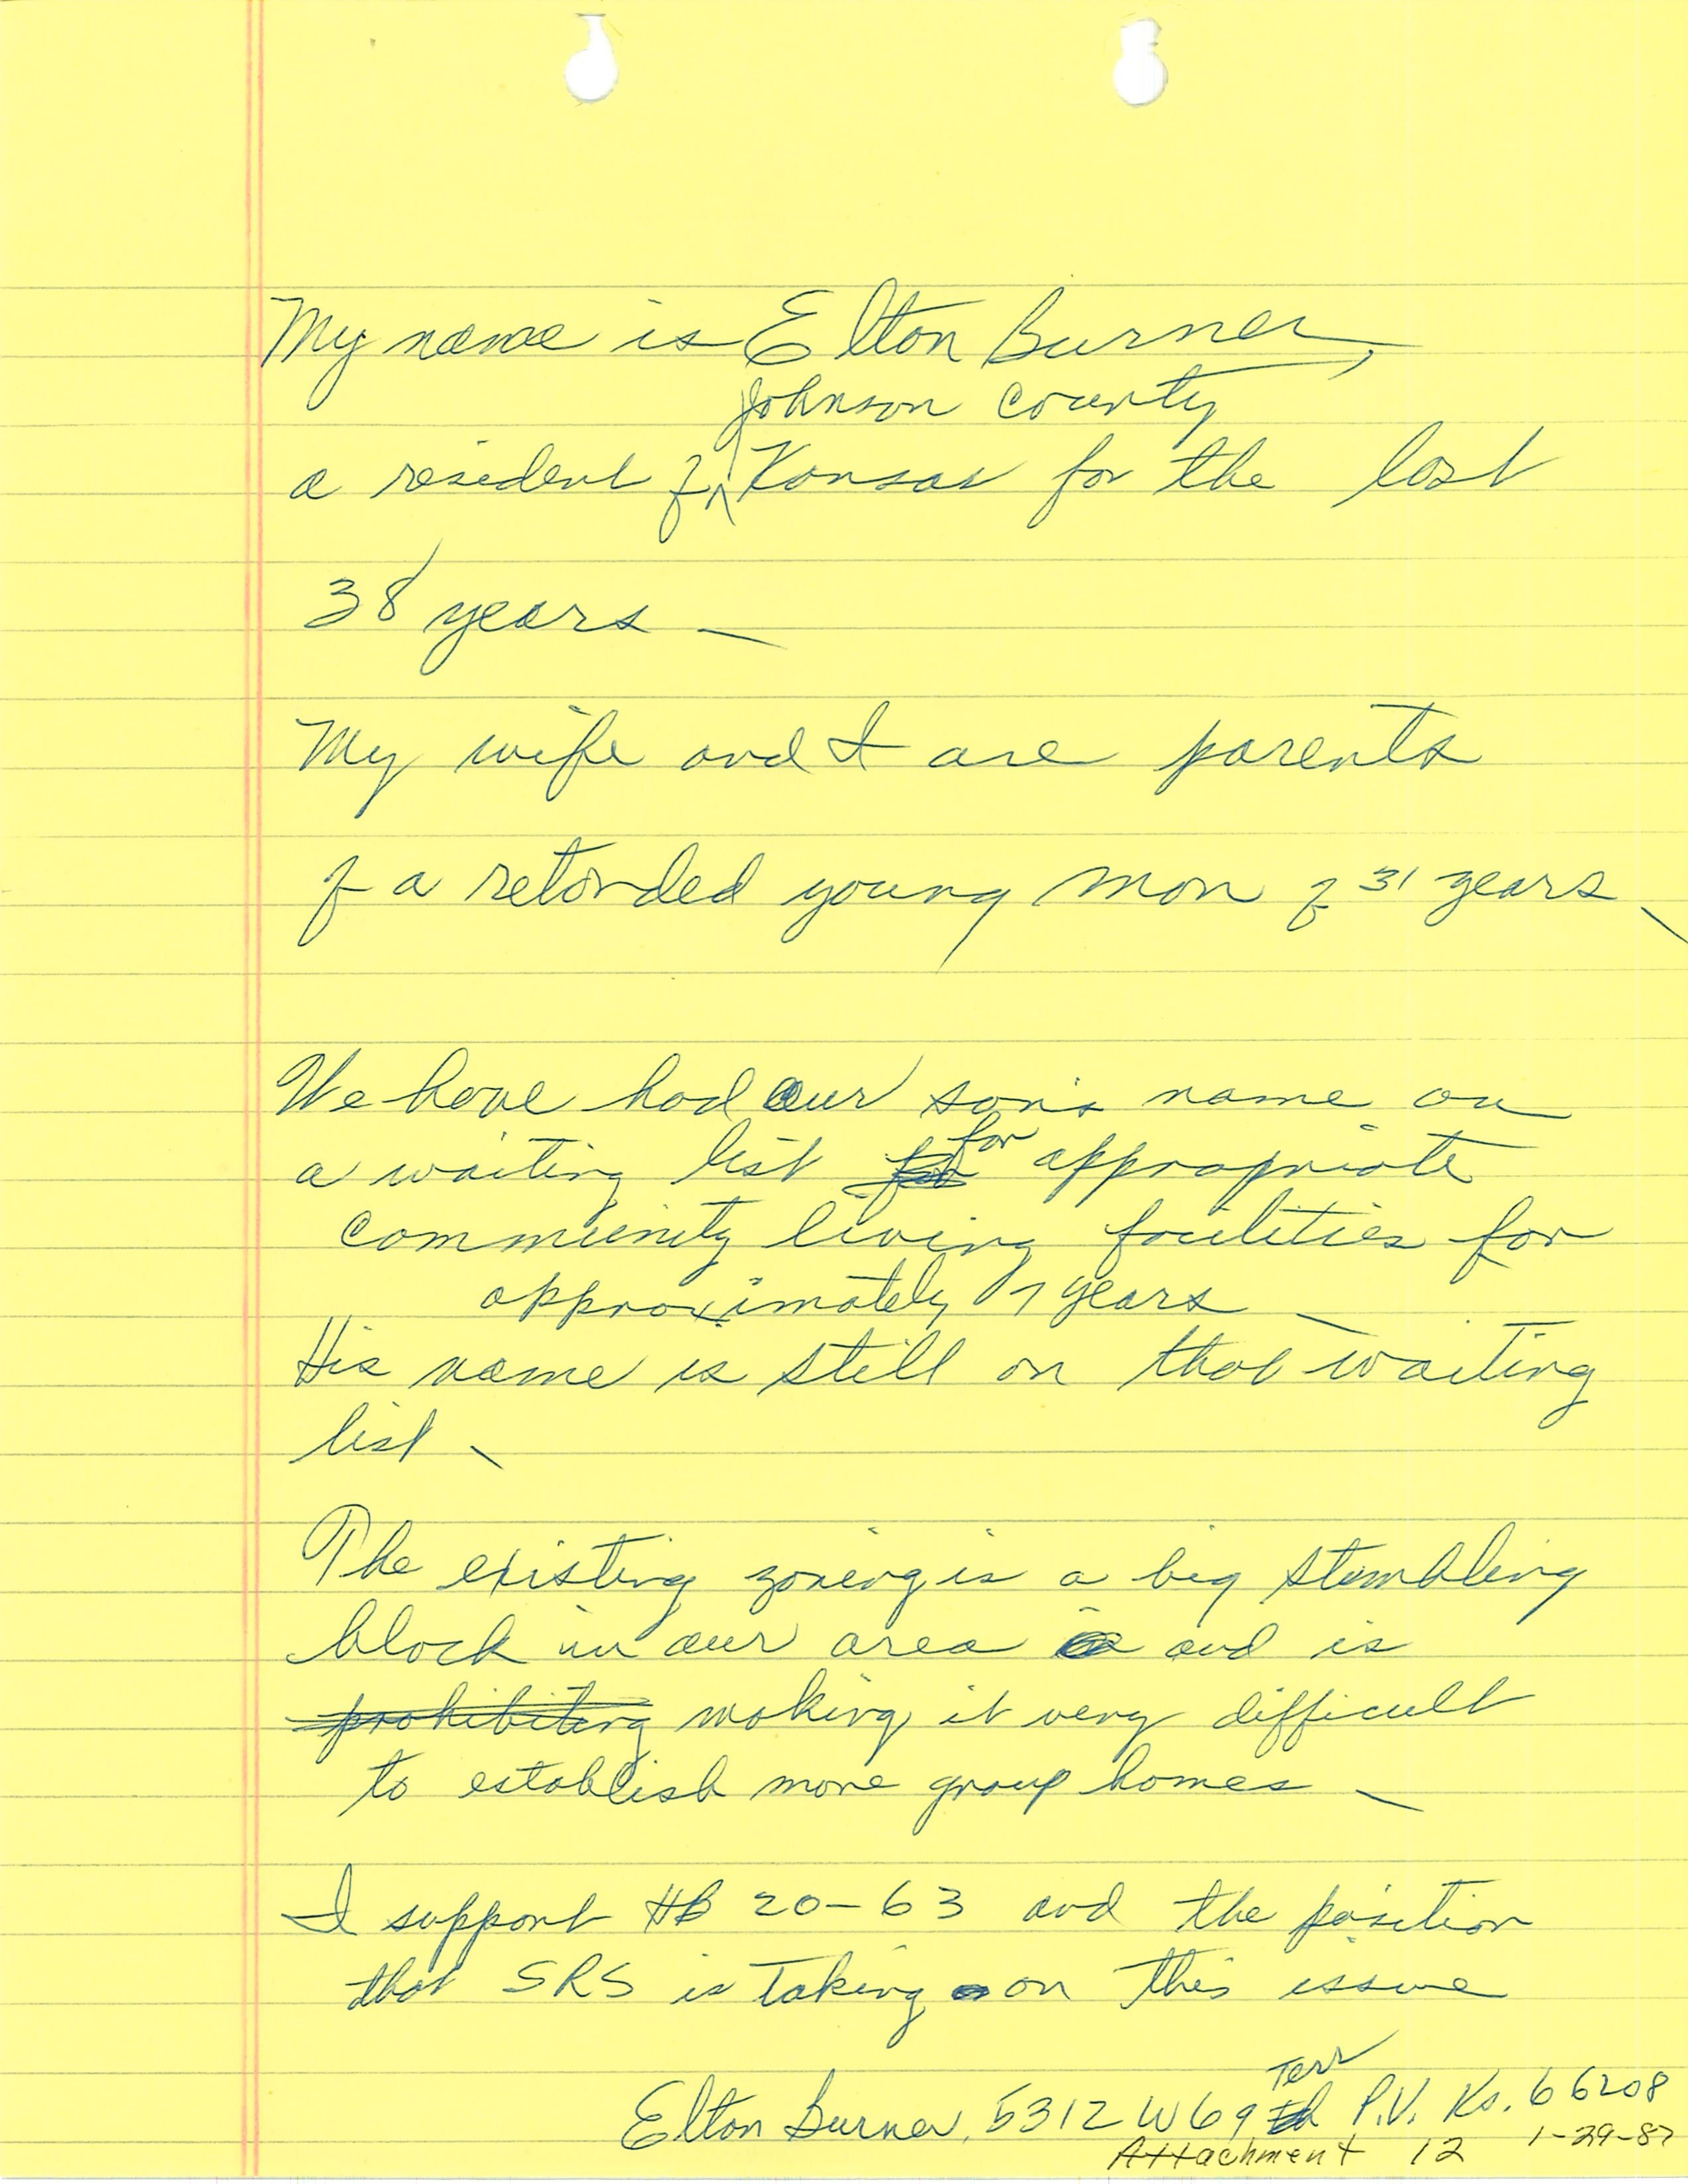 My name is Elton Burner,
Johnson County
a resident of Kansas for the last
38 years –
My wife and I are parents
of a retarded young man of 31 years –
We have had our son's name on
a waiting list for appropriate
community living facilities for
approximately 7 years –
His name is still on that waiting
list –
The existing zoning is a big stumbling
block in our area and is
prohibiting making it very difficult
to establish more group homes –
I support HB 20-63 and the position
that SRS is taking on this issue
Terr
Elton Burner, 5312 W 69 P.V. Ks. 66208
Attachment 12 1-29-87